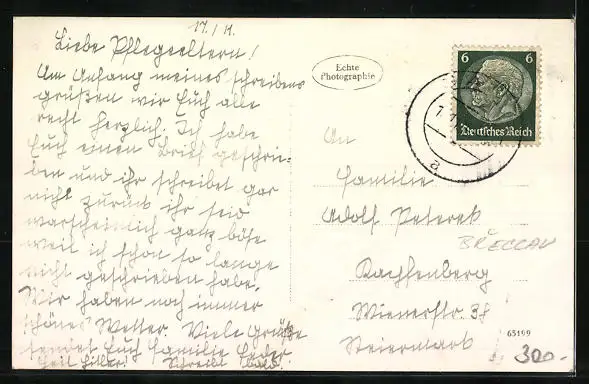 17./11.
Liebe Pflegeeltern!
Am Anfang meines schreibens
grüßen wir Euch alle
recht herzlich. Ich habe
Euch einen Brief geschrie-
ben und ihr schreibet gar
nicht zurück ihr seid
warscheinlich ganz böse
weil ich schon so lange
nicht geschrieben habe.
Wir haben noch immer
schönes Wetter. Viele Grüße
sendet Euch Familie
Heil Hitler! Schreibt bald.
Echte
Photographie
6 6
Deutsches Reich
a
An
Familie
Adolf Peterek
BŘECLAV
Kapfenberg
Wienerstr. 38
Steiermark
65199
300.-